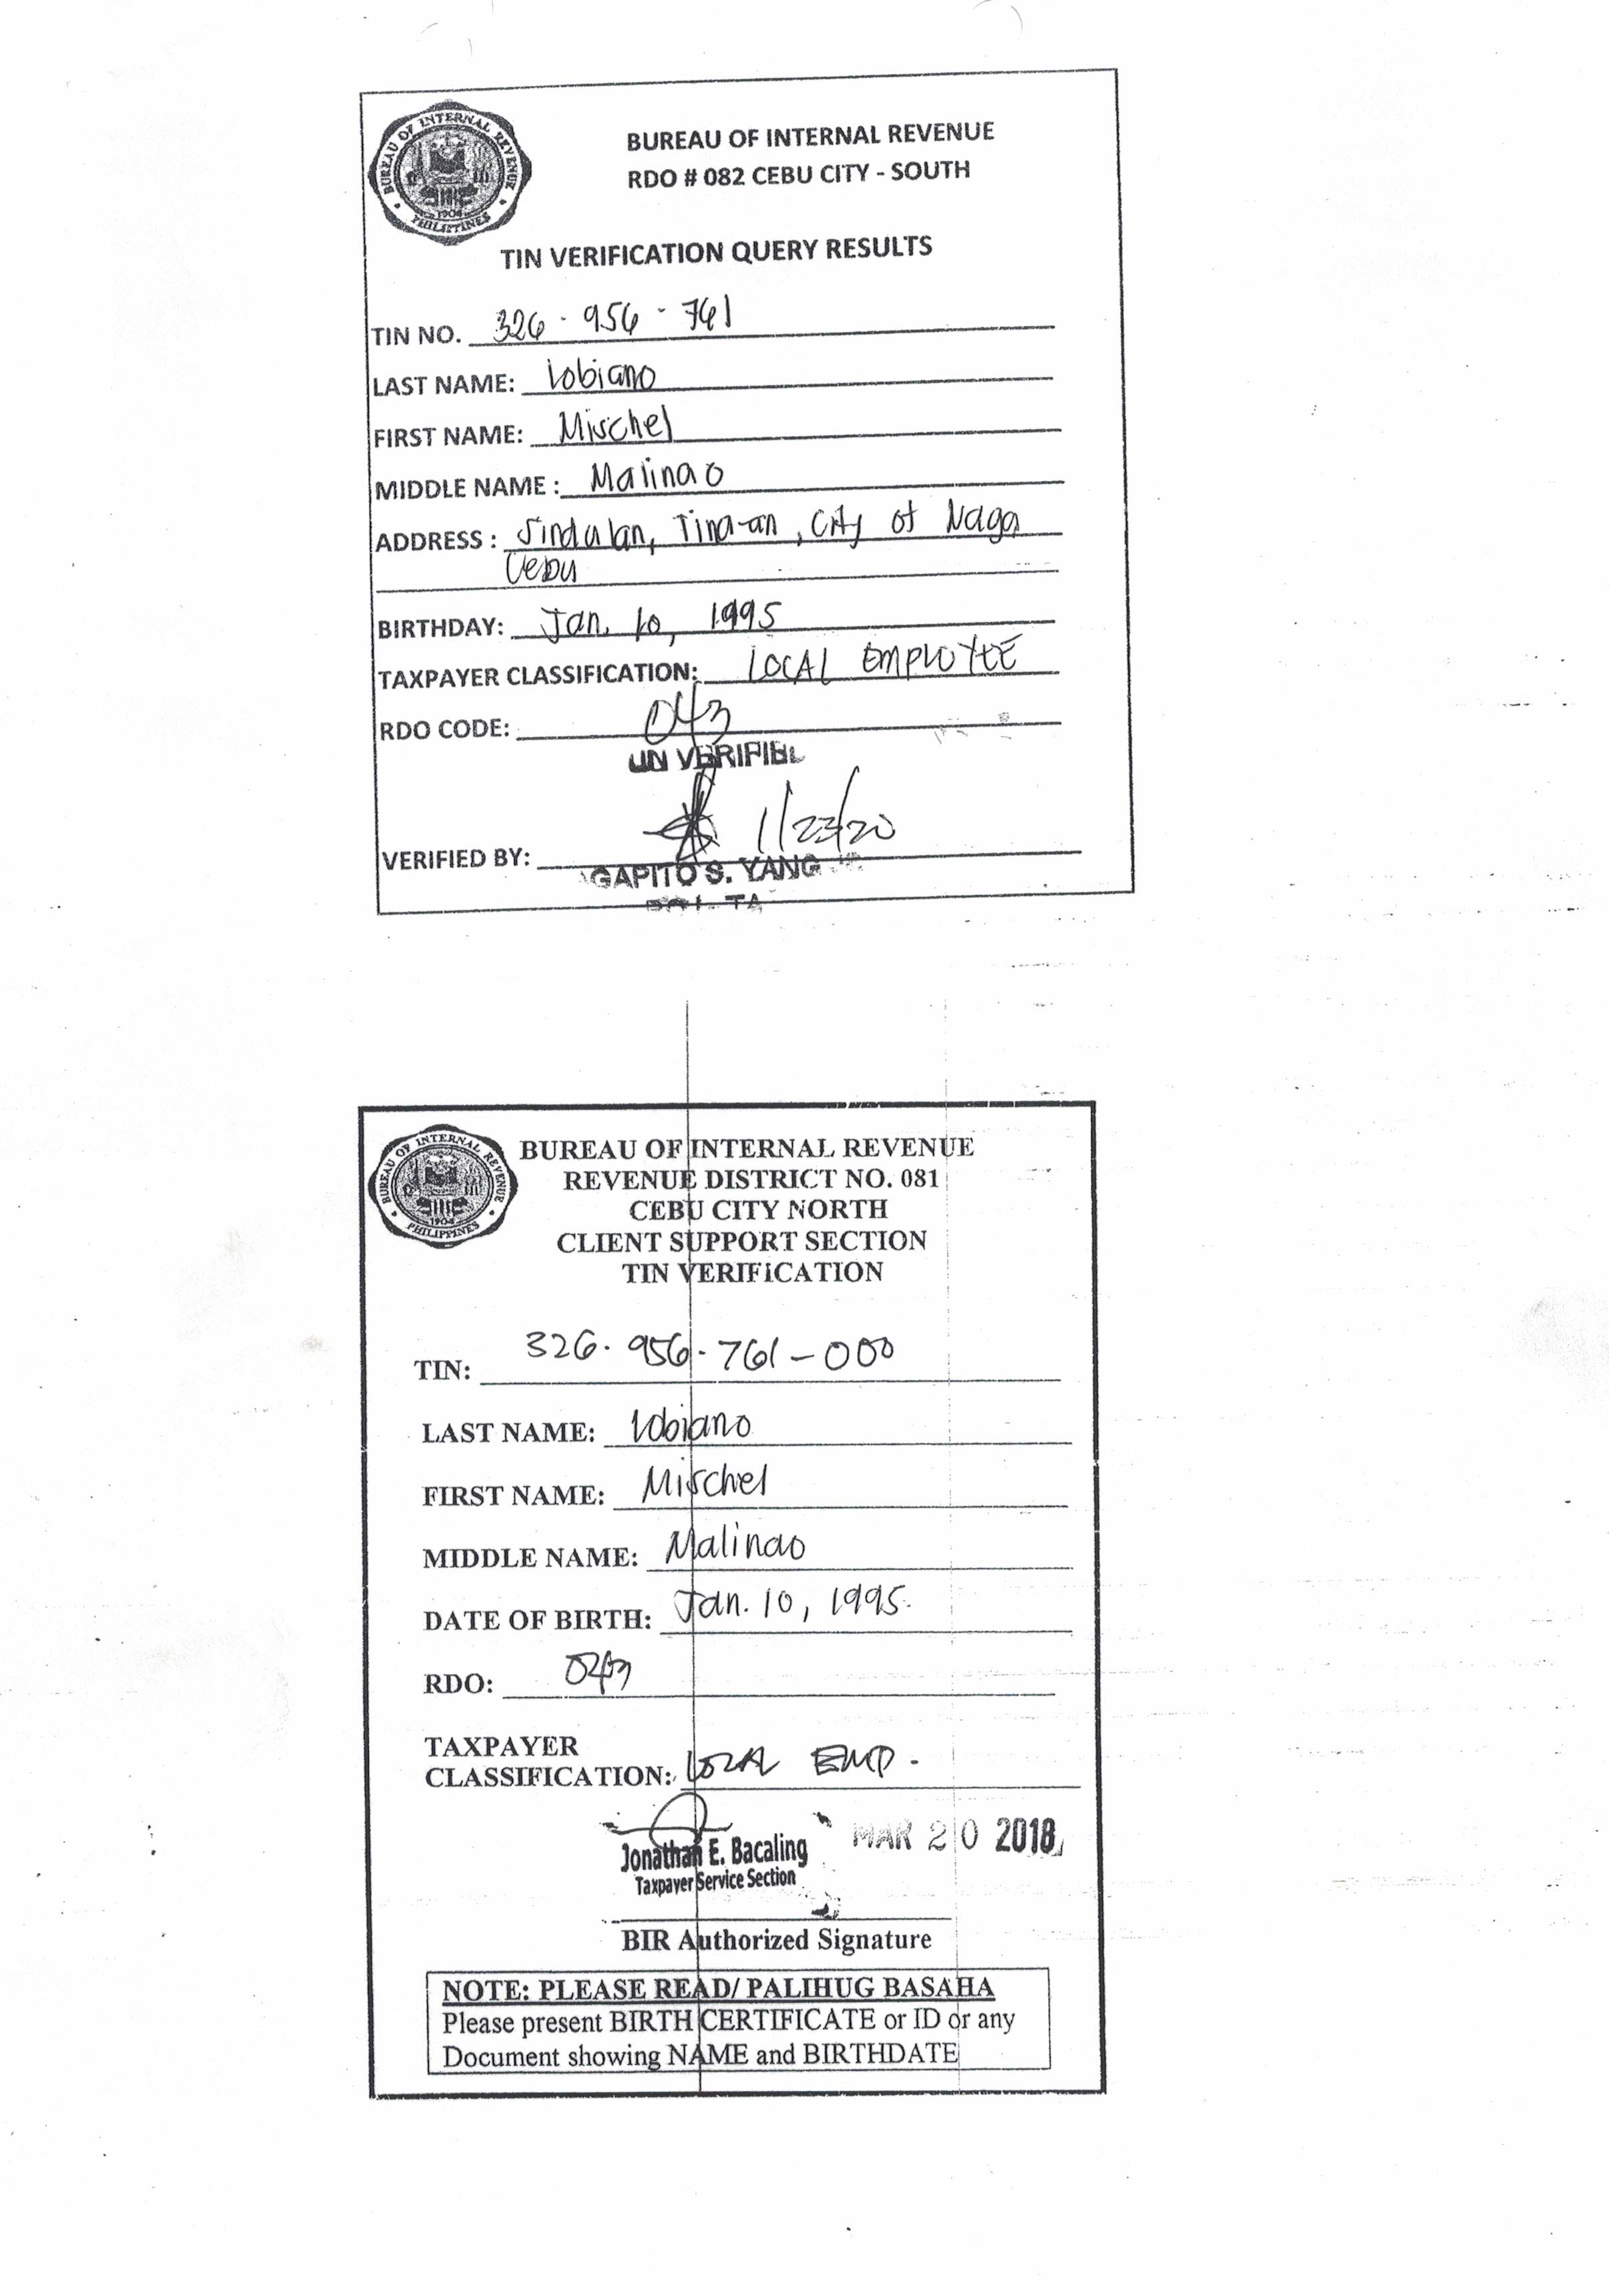 BUREAU OF INTERNAL REVENUE
PHILIPPINES
1904
BUREAU OF INTERNAL REVENUE
RDO # 082 CEBU CITY - SOUTH
TIN VERIFICATION QUERY RESULTS
TIN NO. 326 - 956 - 761
LAST NAME: Lobiano
FIRST NAME: Mischel
MIDDLE NAME : Malinao
ADDRESS : Sindulan, Tina-an, City of Naga
Cebu
BIRTHDAY: Jan. 10, 1995
TAXPAYER CLASSIFICATION: LOCAL EMPLOYEE
RDO CODE: 043
1/23/20
VERIFIED BY:
GAPITO S. YANG
BUREAU OF INTERNAL REVENUE
PHILIPPINES
1904
BUREAU OF INTERNAL REVENUE
REVENUE DISTRICT NO. 081
CEBU CITY NORTH
CLIENT SUPPORT SECTION
TIN VERIFICATION
TIN: 326 - 956 - 761 - 000
LAST NAME: Lobiano
FIRST NAME: Mischel
MIDDLE NAME: Malinao
DATE OF BIRTH: Jan. 10, 1995.
RDO: 043
TAXPAYER
CLASSIFICATION: LOCAL EMP.
MAR 20 2018
Jonathan E. Bacaling
Taxpayer Service Section
BIR Authorized Signature
NOTE: PLEASE READ/ PALIHUG BASAHA
Please present BIRTH CERTIFICATE or ID or any
Document showing NAME and BIRTHDATE